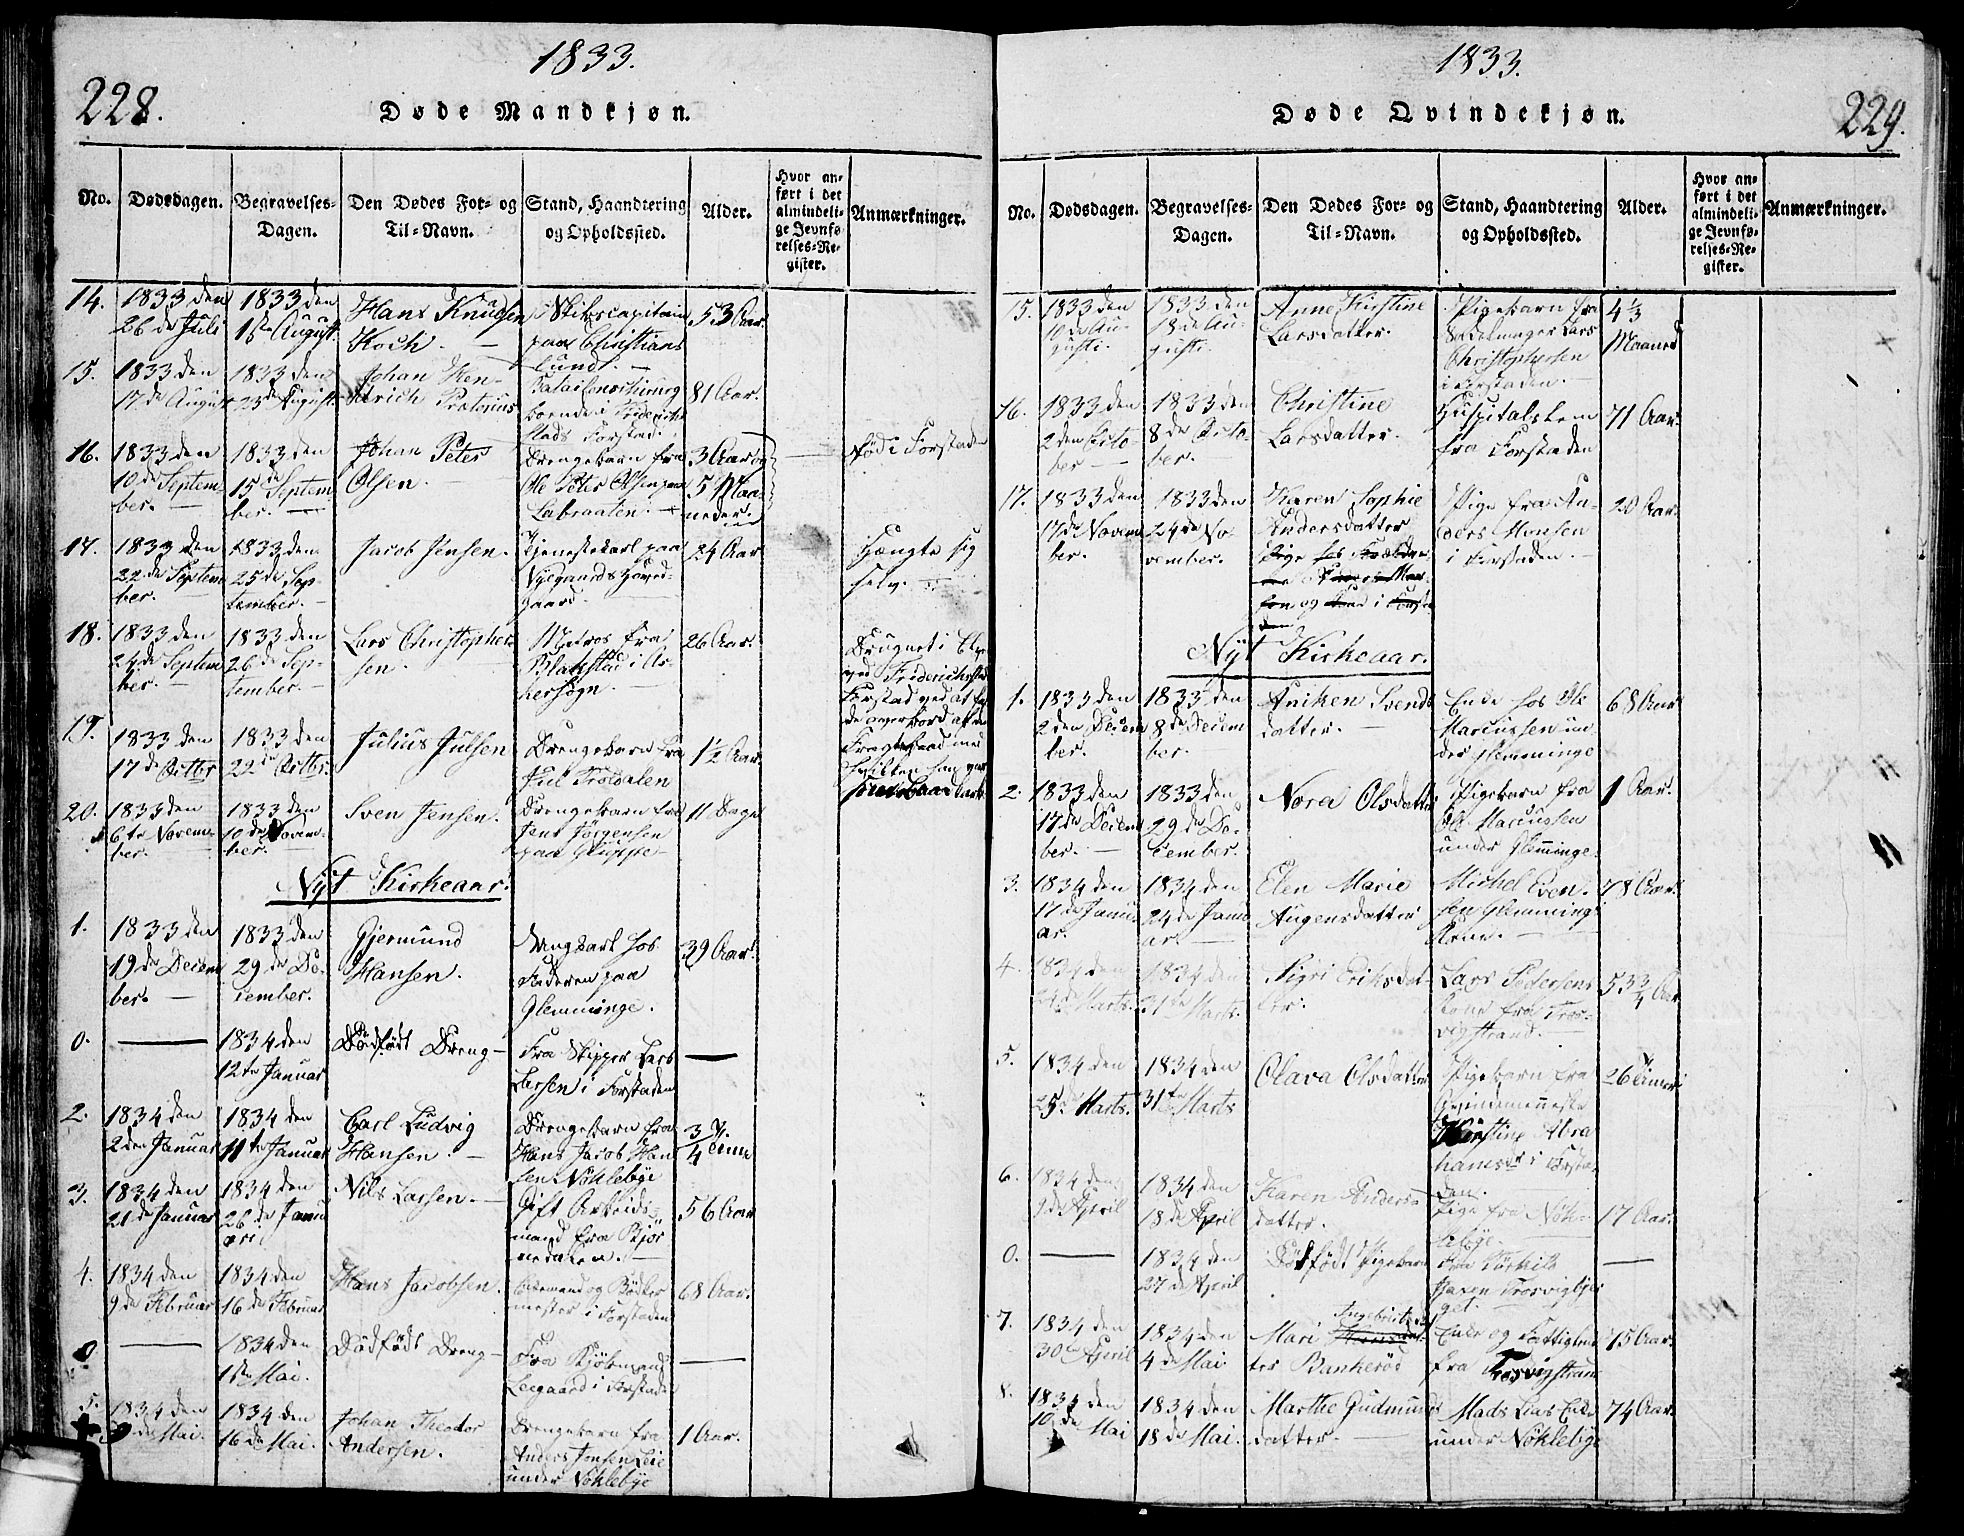 1833.
228.
Døde Mandkjøn.
No. Dødsdagen. Begravelses-Dagen. Den Dødes For- og Til-Navn. Stand, Haandtering og Opholdssted. Alder. Hvor anført i det almindelige Jevnførelses-Register. Anmærkninger.
14. 1833 den 26de Juli 1833 den 1ste August Hans Knudsen Koch. Skibscapitain paa Christianslund. 53 Aar.
15. 1833 den 17de August 1833 den 23de August Johan Henrich Prætorius Batailonschirurg boende i Friderichstads Forstad. 81 Aar.
16. 1833 den 10de September. 1833 den 15de September. Johan Peter Olsen. Drengebarn fra Ole Peter Olsen paa Labraaten. 3 Aar og 5 Maaneder. fød i Forstaden
17. 1833 den 22de September. 1833 den 25de September. Jacob Jensen. Tjenestekarl paa Nygaards Hovedgaard. 24 Aar. Hængte sig selv.
18. 1833 den 24de September. 1833 den 26de September. Lars Christophersen. Matros fra Blakstad i Asker sogn. 26 Aar. Druknet i Elven ved Friderichstad Forstad ved at falde overbord af
19. 1833 den 17de Octbr 1833 den 22de Octbr. Julius Julsen Drengebarn fra Jul Troldalen 1½ Aar.
20. 1833 den 6te November. 1833 den 10de November. Sven Jensen. Drengebarn fra Jens Jørgensen paa Gluppe 11 Dage
Nyt Kirkeaar.
1. 1833 den 19de December. 1833 den 29de December. Gjermund Hansen. Ungkarl hos Faderen paa Glemminge. 39 Aar.
0. — 1834 den 12te Januar Dødfødt Dreng Fra Skipper Lars Larsen i Forstaden —
2. 1834 den 2den Januar 1834 den 11te Januar Carl Ludvig Hansen. Drengebarn fra Hans Jacob Hansen Nøklebye 3/4 Time
3. 1834 den 21de Januar 1834 den 26de Januari Nils Larsen. Gift Arbeidsmand fra Bjørnedalen. 56 Aar
4. 1834 den 9de Februar 1834 den 16de Februar Hans Jacobsen. Enkemand og Bødkermester i Forstaden 68 Aar.
0 — 1834 den 1ste Mai. Dødfødt Dreng Fra Kjøbmand Leegaard i Forstaden —
5. 1834 den de Mai. 1834 den 16de Mai. Johan Theodor Andersen. Drengebarn fra Anders Jonsen Leie under Nøklebye 1 Aar.
1833.
229.
Døde Qvindekjøn.
No. Dødsdagen. Begravelses-Dagen. Den Dødes For- og Til-Navn. Stand, Haandtering og Opholdssted. Alder. Hvor anført i det almindelige Jevnførelses-Register. Anmærkninger.
15. 1833 den 10de Augusti. 1833 den 18de Augusti. Anne Kirstine Larsdatter. Pigebarn fra Lars Christophersen i Forstaden. 4⅓ Maaned
16. 1833 den 2den October 1833 den 8de October. Christine Larsdatter. Hospitalslem fra Forstaden 71 Aar.
17. 1833 den 17de November 1833 den 24de November. Karen Sophie Andersdatter Pige fra Anders Monsen i Forstaden. 20 Aar.
Nyt Kirkeaar.
1. 1833 den 2den December. 1833 den 8de December Aniken Svendsdatter. Enke hos Ole Marcussen under Glemminge 68 Aar
2. 1833 den 17de December. 1833 den 29de December. Nora Olsdatter Pigebarn fra Ole Marcussen under Glemminge. 1 Aar.
3. 1834 den 17de Januar. 1834 den 24de Januar. Elen Marie Augensdatter Michel Evensen Glemminges Kone. 78 Aar.
4. 1834 den 24de Marts. 1834 den 31te Marts. Sigri Eriksdatter. Lars Pedersens Kone fra Trosvigstrand. 53¾ Aar
5. 1834 den 25de Marts. 1834 den 31te Marts Olava Olsdatter Pigebarn fra Qvindemenneske Kirstine Abrahamsdt i Forstaden. 26 Timer
6. 1834 den 9de April 1834 den 18de April Karen Andersdatter. Pige fra Nøklebye. 17 Aar.
0. — 1834 den 27de April Dødfødt Pigebarn Fra Trosvigbjerget. —
7. 1834 den 30te April 1834 den 4de Mai Mari Ingebrits datter Bankerød Enke og Fattiglem fra Trosvigstrand 75 Aar.
8. 1834 den 10de Mai 1834 den 18de Mai. Marthe Gudmundsdatter. Mads Lies Enke under Nøklebye 74 Aar.